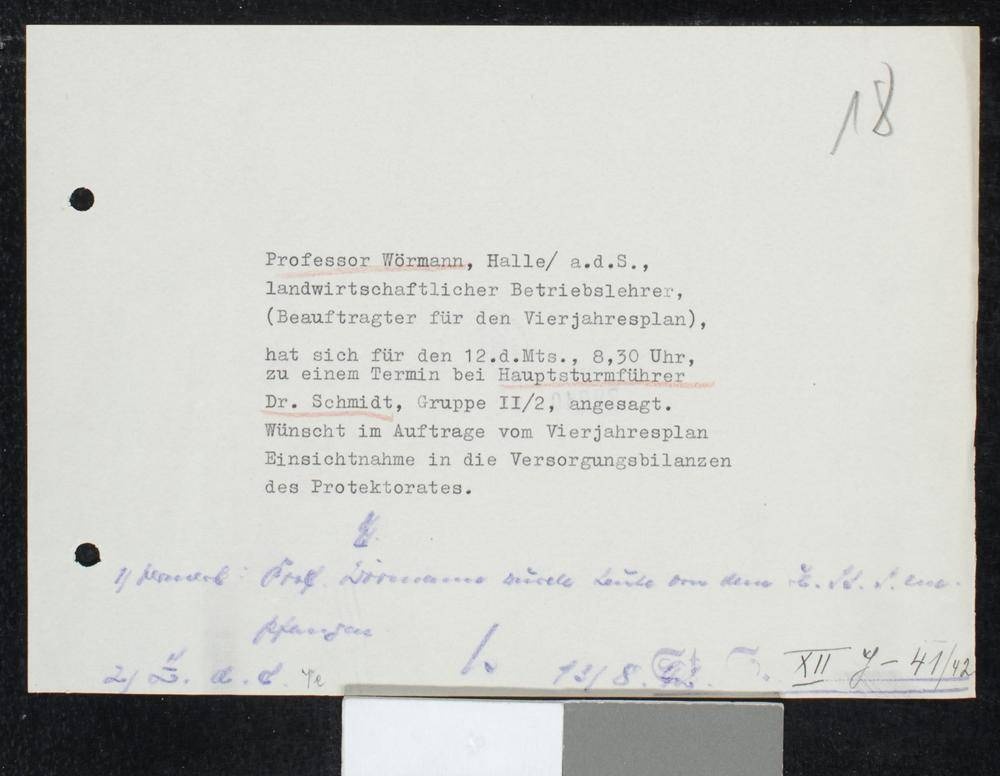 18
Professor Wörmann, Halle/ a.d.S.,
landwirtschaftlicher Betriebslehrer,
(Beauftragter für den Vierjahresplan),
hat sich für den 12.d.Mts., 8,30 Uhr,
zu einem Termin bei Hauptsturmführer
Dr. Schmidt, Gruppe II/2, angesagt.
Wünscht im Auftrage vom Vierjahresplan
Einsichtnahme in die Versorgungsbilanzen
des Protektorates.
1) Vermerk: Prof. Wörmann wurde heute von dem
pfangen
2) Z. d. A.
13/8. 42.
XII J - 41/42